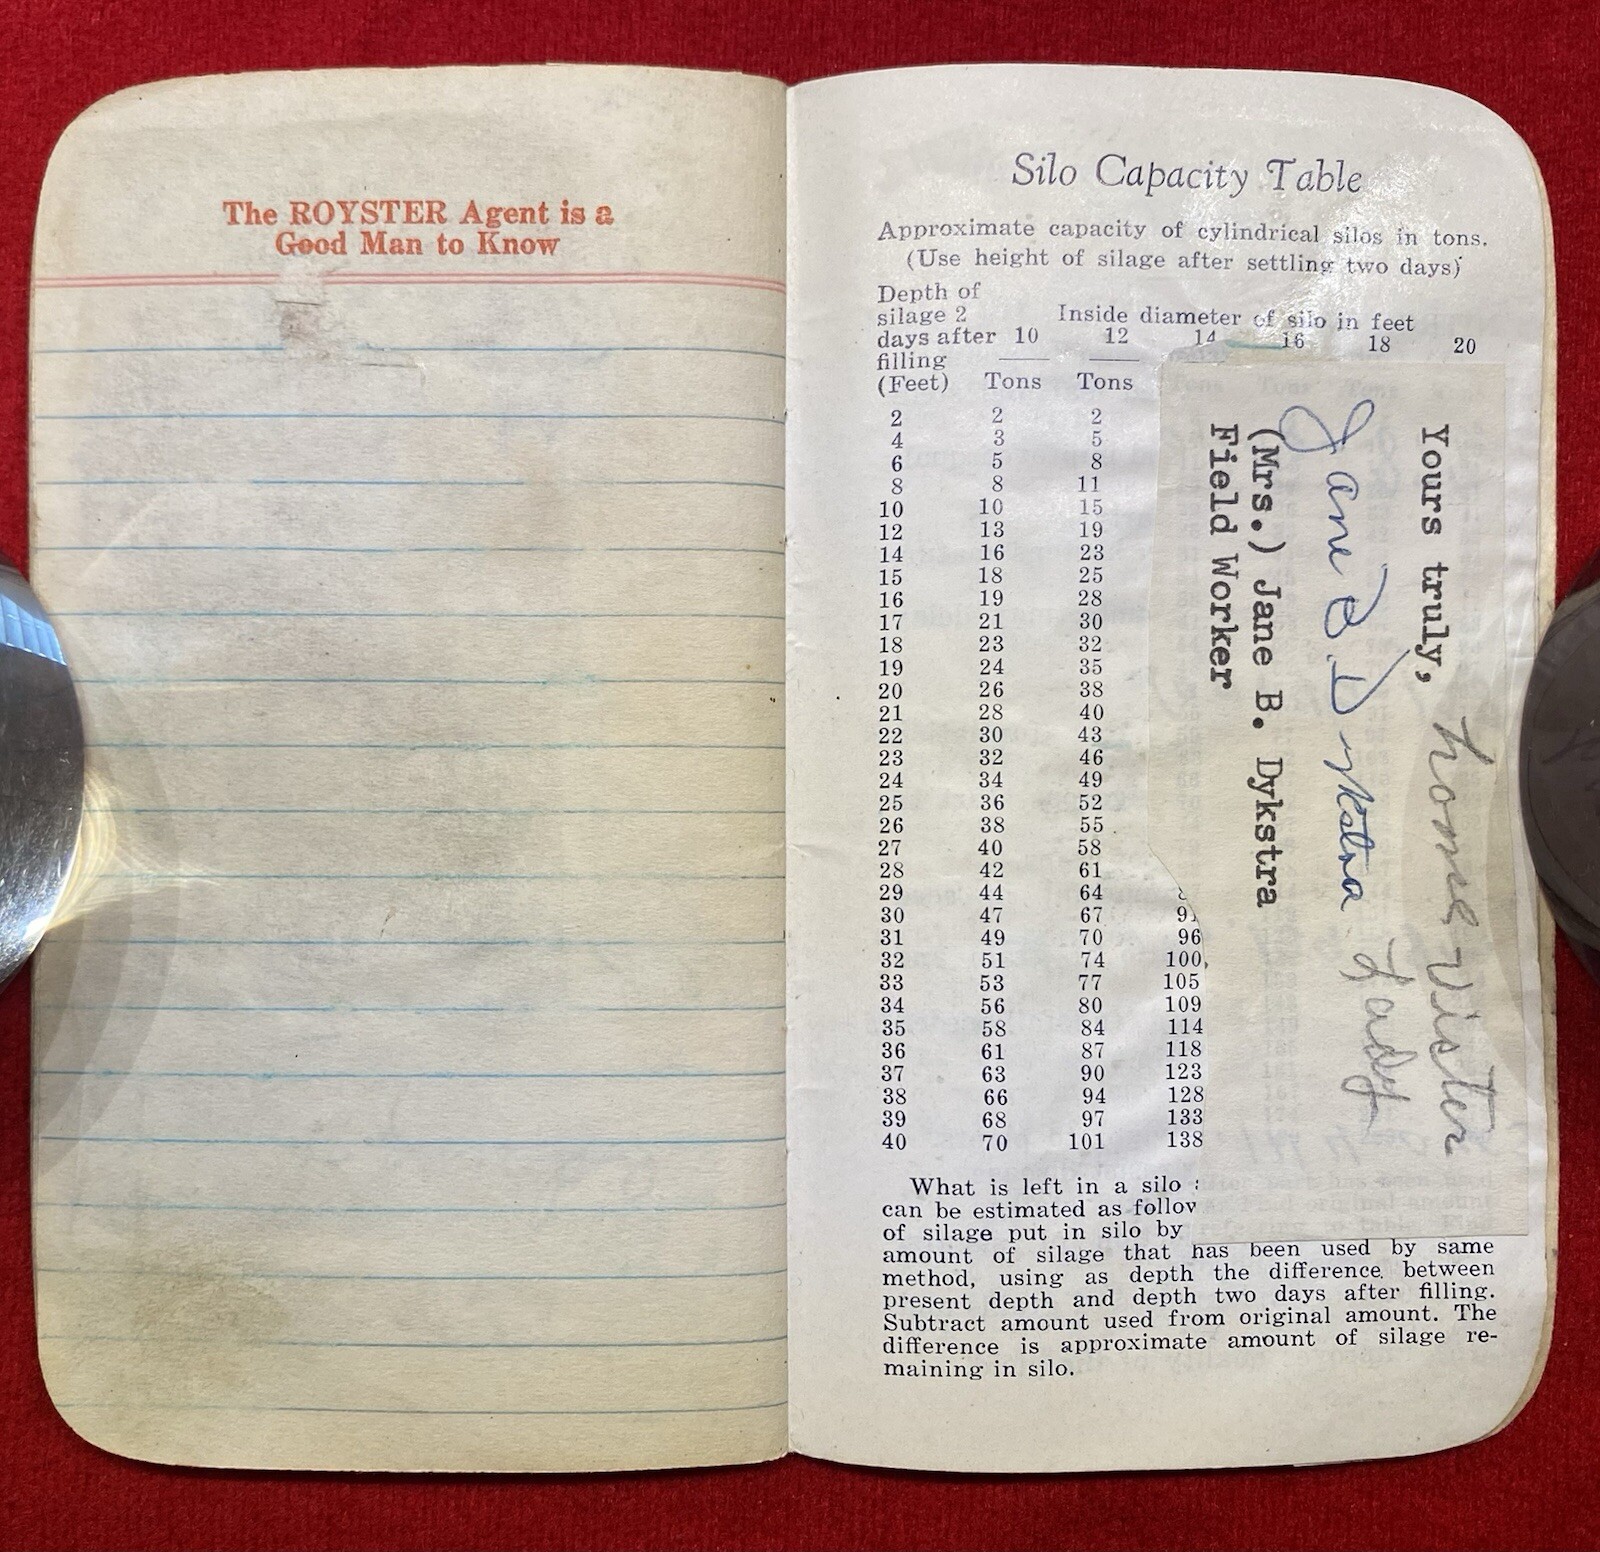 The ROYSTER Agent is a
Good Man to Know
Silo Capacity Table
Approximate capacity of cylindrical silos in tons.
(Use height of silage after settling two days)
Depth of
silage 2 Inside diameter of silo in feet
days after 10 12 14 16 18 20
filling
(Feet) Tons Tons Tons Tons Tons
2 2 2
4 3 5
6 5 8
8 8 11
10 10 15
12 13 19
14 16 23
15 18 25
16 19 28
17 21 30
18 23 32
19 24 35
20 26 38
21 28 40
22 30 43
23 32 46
24 34 49
25 36 52
26 38 55
27 40 58
28 42 61
29 44 64
30 47 67
31 49 70 96
32 51 74 100
33 53 77 105
34 56 80 109
35 58 84 114
36 61 87 118
37 63 90 123
38 66 94 128
39 68 97 133
40 70 101 138
What is left in a silo
can be estimated as follow
of silage put in silo by
amount of silage that has been used by same
method, using as depth the difference between
present depth and depth two days after filling.
Subtract amount used from original amount. The
difference is approximate amount of silage re-
maining in silo.
Yours truly,
Jane B. Dykstra
(Mrs.) Jane B. Dykstra
Field Worker
home Victer
Lady